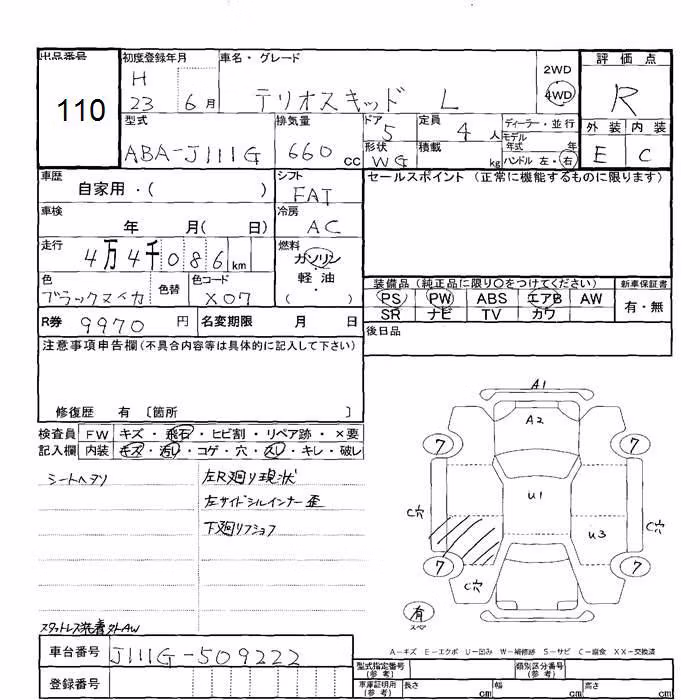 出品番号 初度登録年月 車名・グレード 評価点
110 H 23 6月 テリオスキッド L 2WD 4WD R
型式 排気量 ドア 定員 ディーラー・並行 外装 内装
ABA-J111G 660cc 5 4人 モデル年式 年 E C
形状 WG 積載 kg ハンドル 左・右
車歴 自家用・( ) シフト FAT セールスポイント (正常に機能するものに限ります)
車検 年 月( 日) 冷房 AC
走行 4万4千086km 燃料 ガソリン・軽油・( )
色 ブラックマイカ 色替 色コード X07
装備品 (純正品に限り○をつけてください) 新車保証書
PS PW ABS エアB AW 有・無
SR ナビ TV カワ
R券 9970円 名変期限 月 日 後日品
注意事項申告欄(不具合内容等は具体的に記入して下さい)
修復歴 有 〔箇所 〕
検査員 FW キズ・飛石・ヒビ割・リペア跡・×要
記入欄 内装 キズ・汚れ・コゲ・穴・スレ・キレ・破レ
シートヘタリ 左R廻り現状
左サイドシルインナー歪
下廻りフショク
A1
A2
7 7
U1
C穴 U3 C穴
7 7
C穴
有
スペア
スタットレス装着外AW
A-キズ E-エクボ U-凹み W-補修跡 S-サビ C-腐食 XX-交換済
車台番号 J111G-509222
型式指定番号(参考) 類別区分番号(参考)
登録番号 車庫証明用(参考) 長さ cm 幅 cm 高さ cm